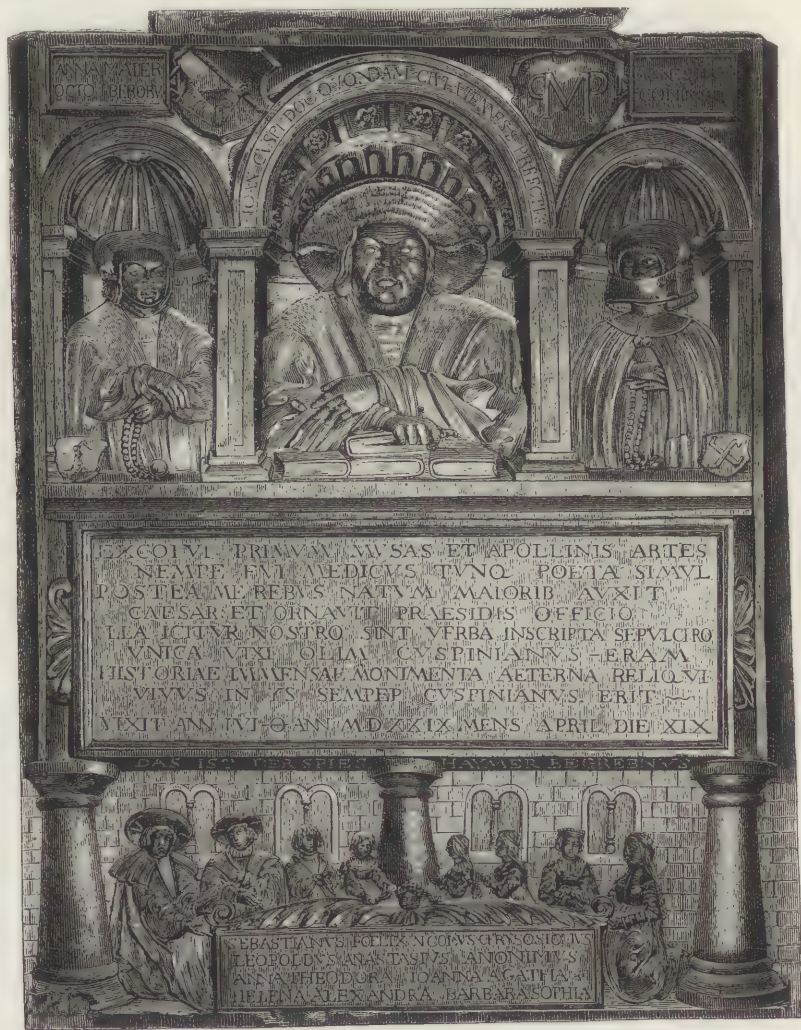 ANNA MATER
OCTO LIBERORV
CMP
AGNES
CONIVNX
IOAN CVSPI DOC QVONDAM CIVI VIENNENS PREFECTVS
EXCOLVI PRIMVM MVSAS ET APOLLINIS ARTES
NEMPE FVI MEDICVS TVNQ POETA SIMVL
POSTEA ME REBVS NATVM MAIORIB AVXIT
CAESAR ET ORNAVIT PRAESIDIS OFFICIO
ILLA IGITVR NOSTRO SINT VERBA INSCRIPTA SEPVLCRO
VNICA VIXI OLIM CVSPINIANVS ERAM
HISTORIAE IMMENSAE MONIMENTA AETERNA RELIQVI
VIVVS IN IS SEMPER CVSPINIANVS ERIT
VIXIT ANN LVI O ANN MDXXIX MENS APRIL DIE XIX
DAS IST DER SPIES HAMER BEGREBNVS
SEBASTIANVS FOELIX NCOLVS CHRYSOSTO
LEOPOLDVS ANASTASIVS ANONIMVS
ANNA THEODORA IOANNA AGATHA
HELENA ALEXANDRA BARBARA SOPHIA